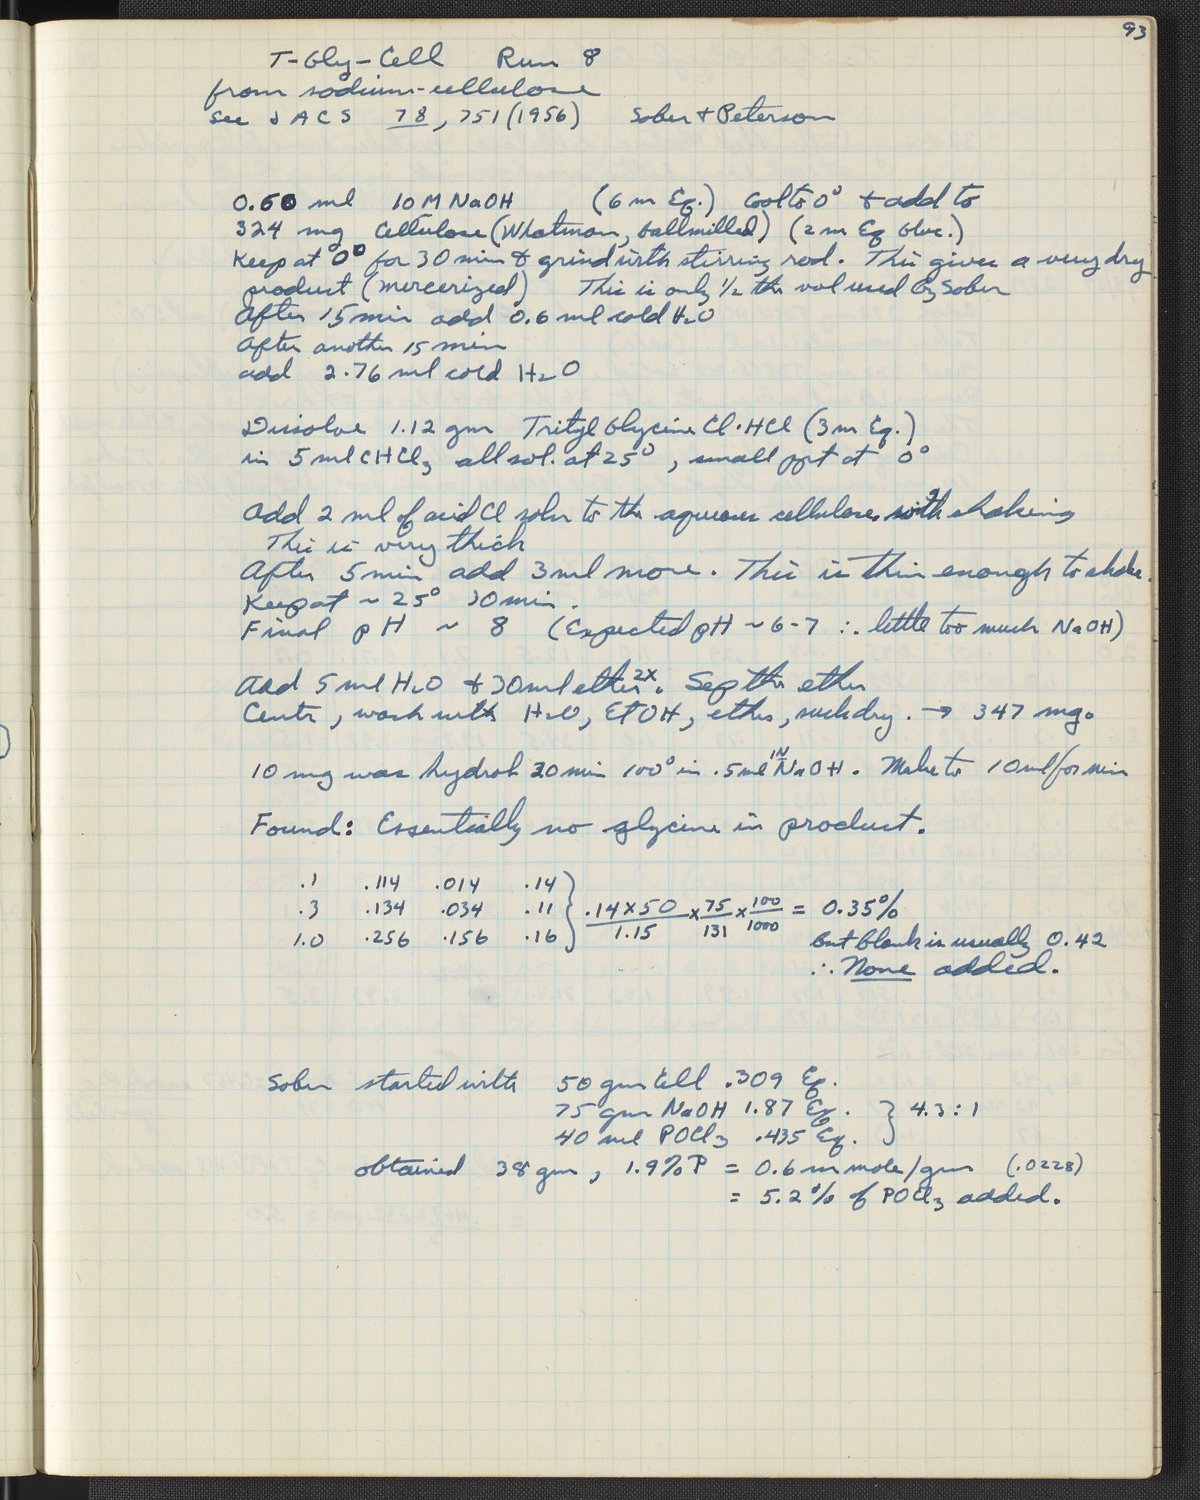 93
T-Gly-Cell Run 8
from sodium-cellulose
see J A C S 78, 751 (1956) Sober + Peterson
0.60 ml 10 M NaOH (6 m Eq.) Cool to 0° + add to
324 mg Cellulose (Whatman, ballmilled) (2 m Eq Gluc.)
Keep at 0° for 30 min & grind with stirring rod. This gives a very dry
product (mercerized) This is only ½ the vol used by Sober
After 15 min add 0.6 ml cold H2O
After another 15 min
add 2.76 ml cold H2O
Dissolve 1.12 gm Trityl Glycine Cl·HCl (3 m Eq.)
in 5 ml CHCl3 all sol. at 25°, small ppt at 0°
Add 2 ml of acid Cl soln to the aqueous cellulose with shaking
This is very thick
After 5 min add 3 ml more. This is thin enough to shake.
Keep at ~ 25° 30 min.
Final pH ~ 8 (Expected pH ~ 6-7 ∴ little too much NaOH)
Add 5 ml H2O + 30 ml ether 2X. Sep the ether
Centr, wash with H2O, EtOH, ether, suck dry. → 347 mg.
10 mg was hydrol 30 min 100° in .5 ml 1N NaOH. Make to 10 ml for nin
Found: Essentially no glycine in product.
.1 .114 .014 .14
.3 .134 .034 .11 } .14 x 50 / 1.15 x 75/131 x 100/1000 = 0.35%
1.0 .256 .156 .16
But blank is usually 0.42
∴ None added.
Sober started with 50 gm Cell .309 Eq.
75 gm NaOH 1.87 Eq. } 4.3 : 1
40 ml POCl3 .435 Eq.
obtained 38 gm, 1.9% P = 0.6 m mole/gm (.0228)
= 5.2% of POCl3 added.